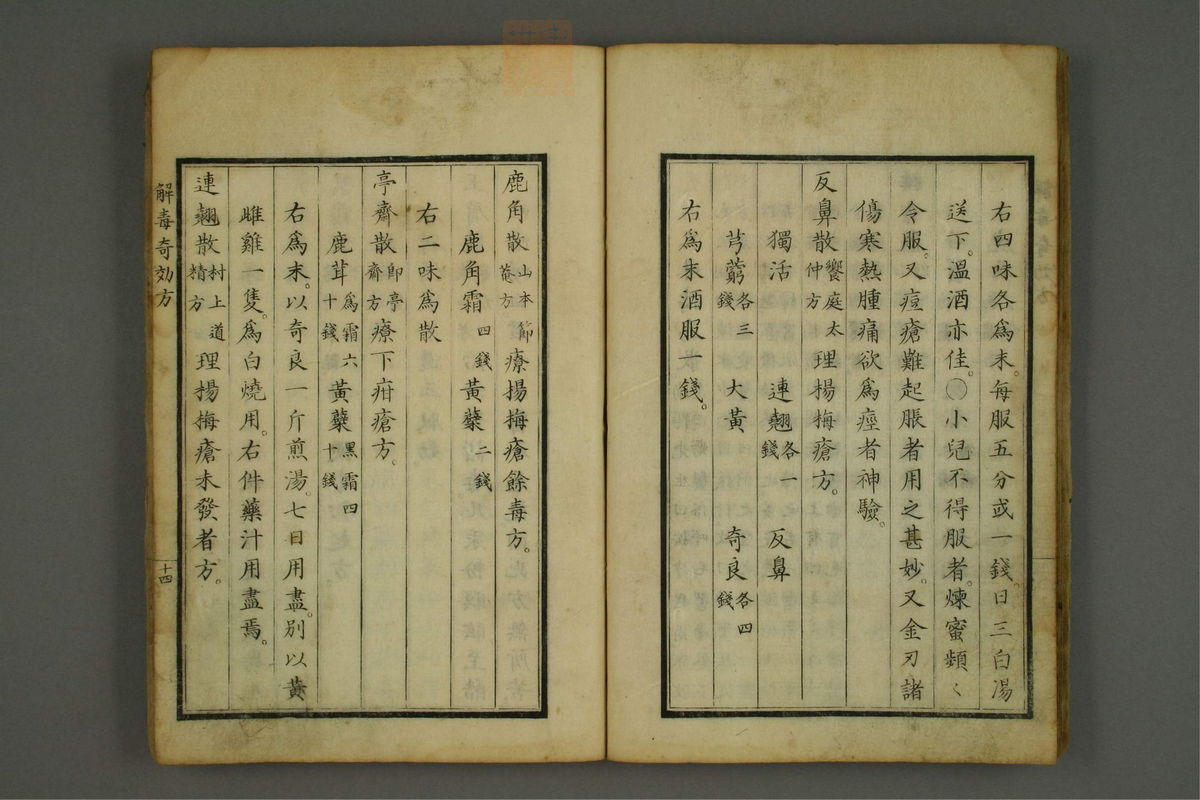 右四味各爲末。每服五分或一錢。日三白湯
送下。溫酒亦佳。〇小兒不得服者。煉蜜頻〻
令服。又痘瘡難起脹者用之甚妙。又金刃諸
傷寒熱腫痛欲爲痙者神驗。
反鼻散饗庭太仲方理楊梅瘡方。
獨活 連翹各一錢 反鼻
芎藭各三錢 大黃 奇良各四錢
右爲末酒服一錢。
鹿角散山本節菴方療楊梅瘡餘毒方。
鹿角霜四錢黃蘗二錢
右二味爲散
亭齋散卽亭齋方療下疳瘡方。
鹿茸爲霜六十錢黃蘗黑霜四十錢
右爲末。以奇良一斤煎湯。七日用盡。別以黃
雌雞一隻。爲白燒用。右件藥汁用盡焉。
連翹散村上道精方理楊梅瘡未發者方。
解毒奇効方
十四